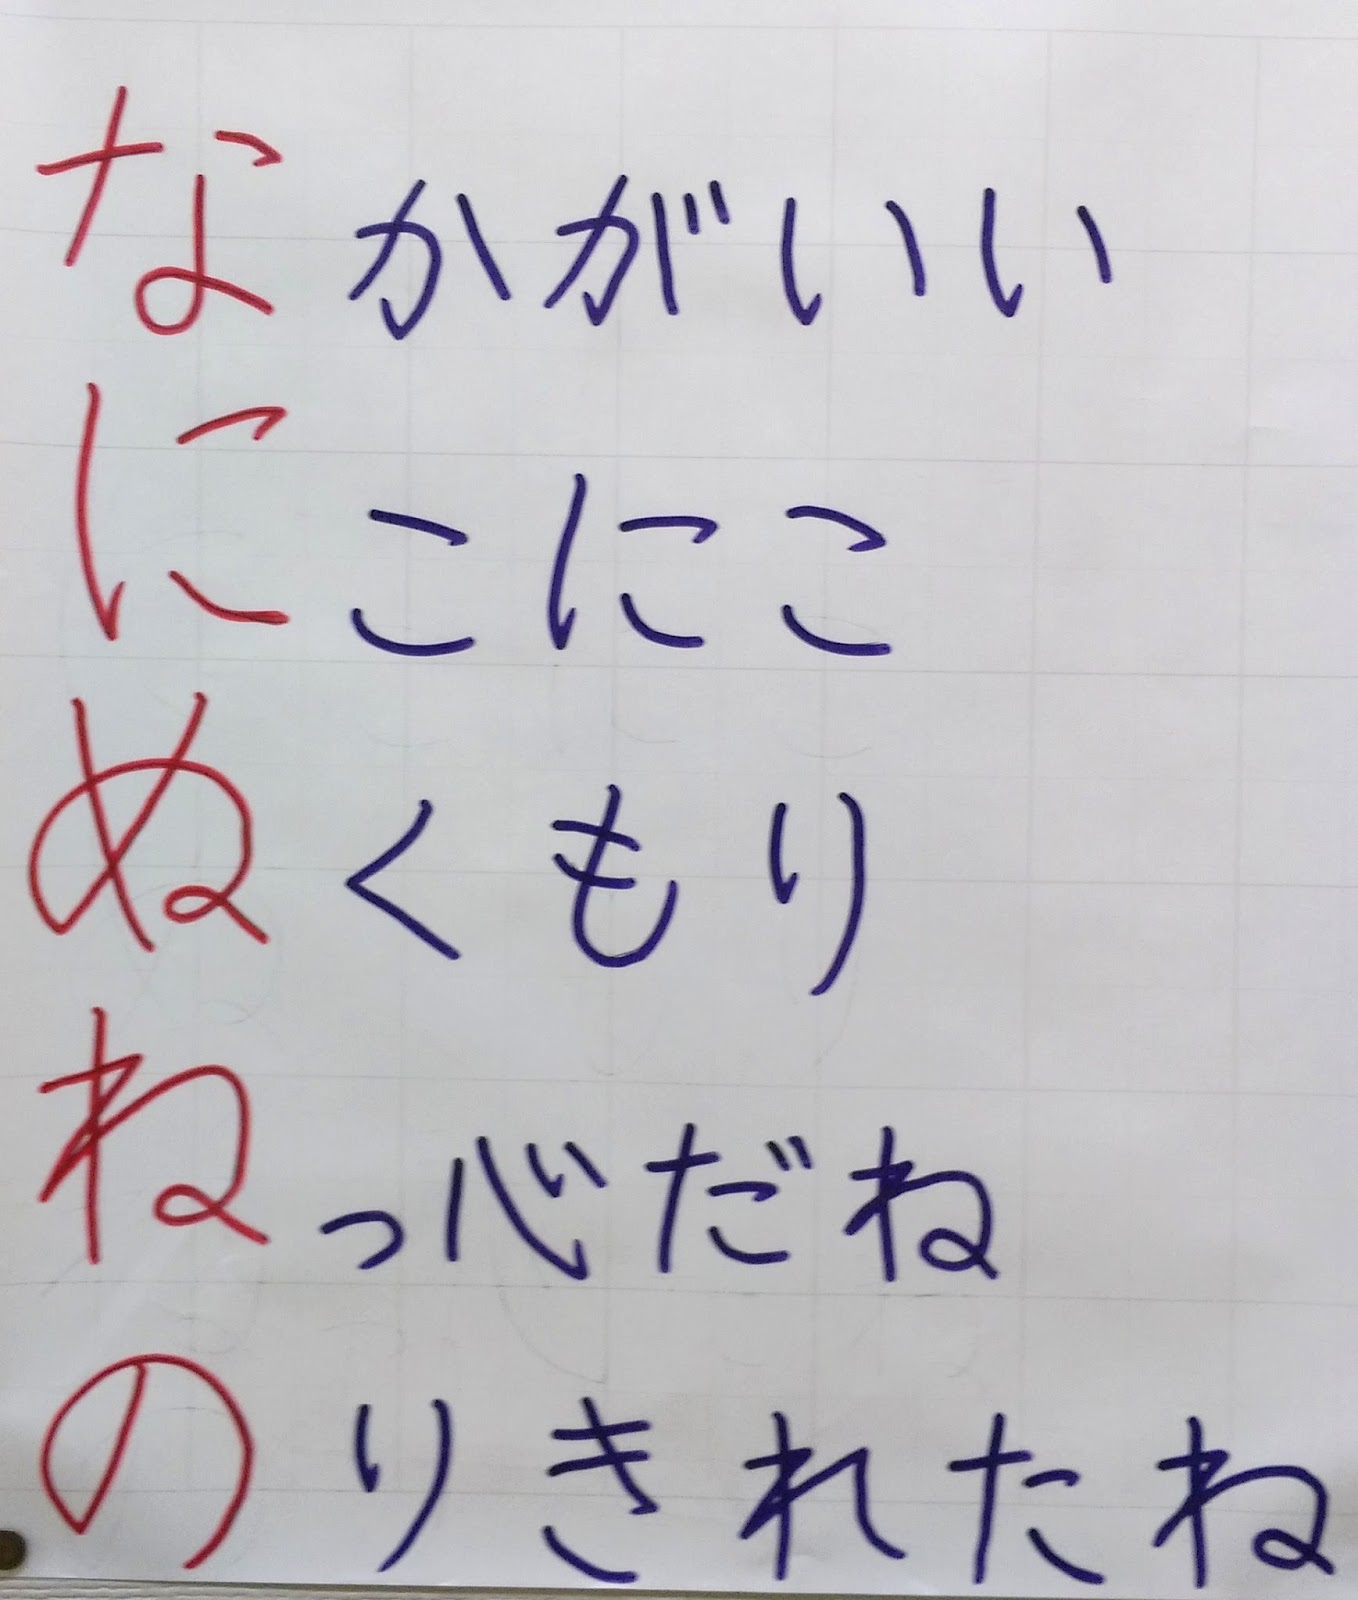 なかがいい
にこにこ
ぬくもり
ねっ心だね
のりきれたね